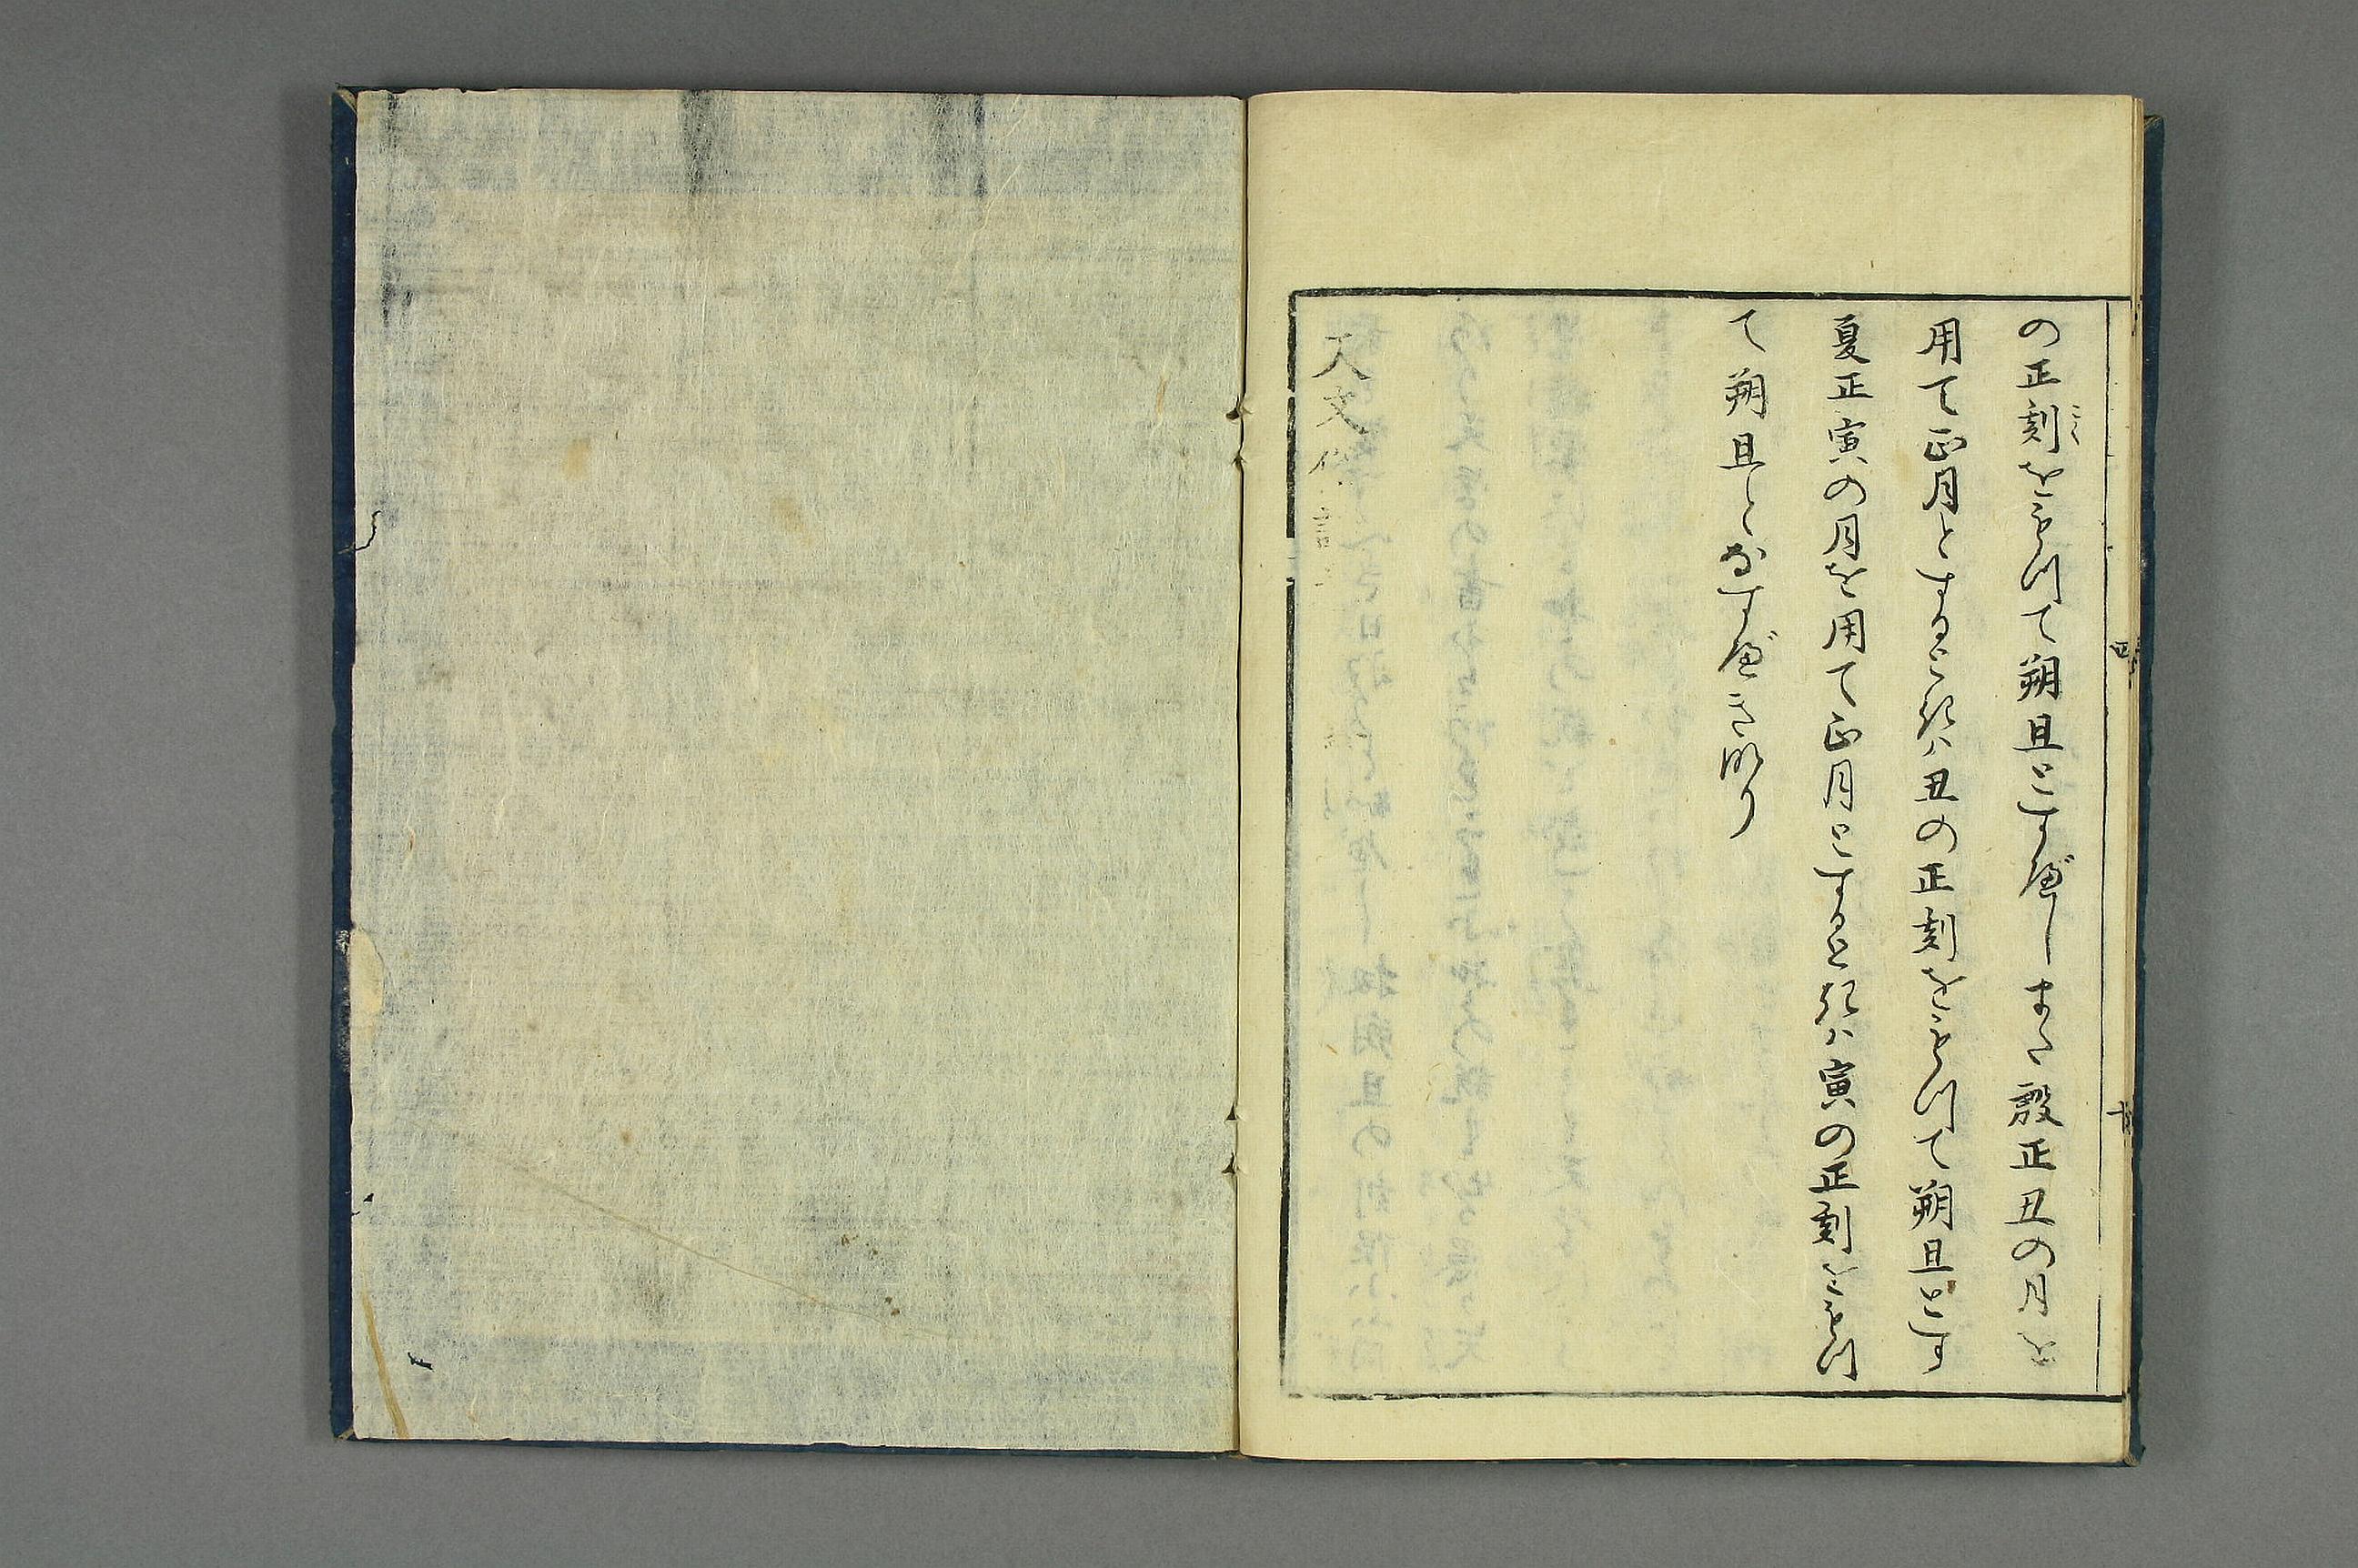 の正刻をもつて朔旦とすべしまた殷正丑の月を
こく
用て正月とするときハ丑の正刻をもつて朔旦とす
夏正寅の月を用て正月とするときハ寅の正刻をもつ
て朔旦となすべき也
天文俗言
四
十